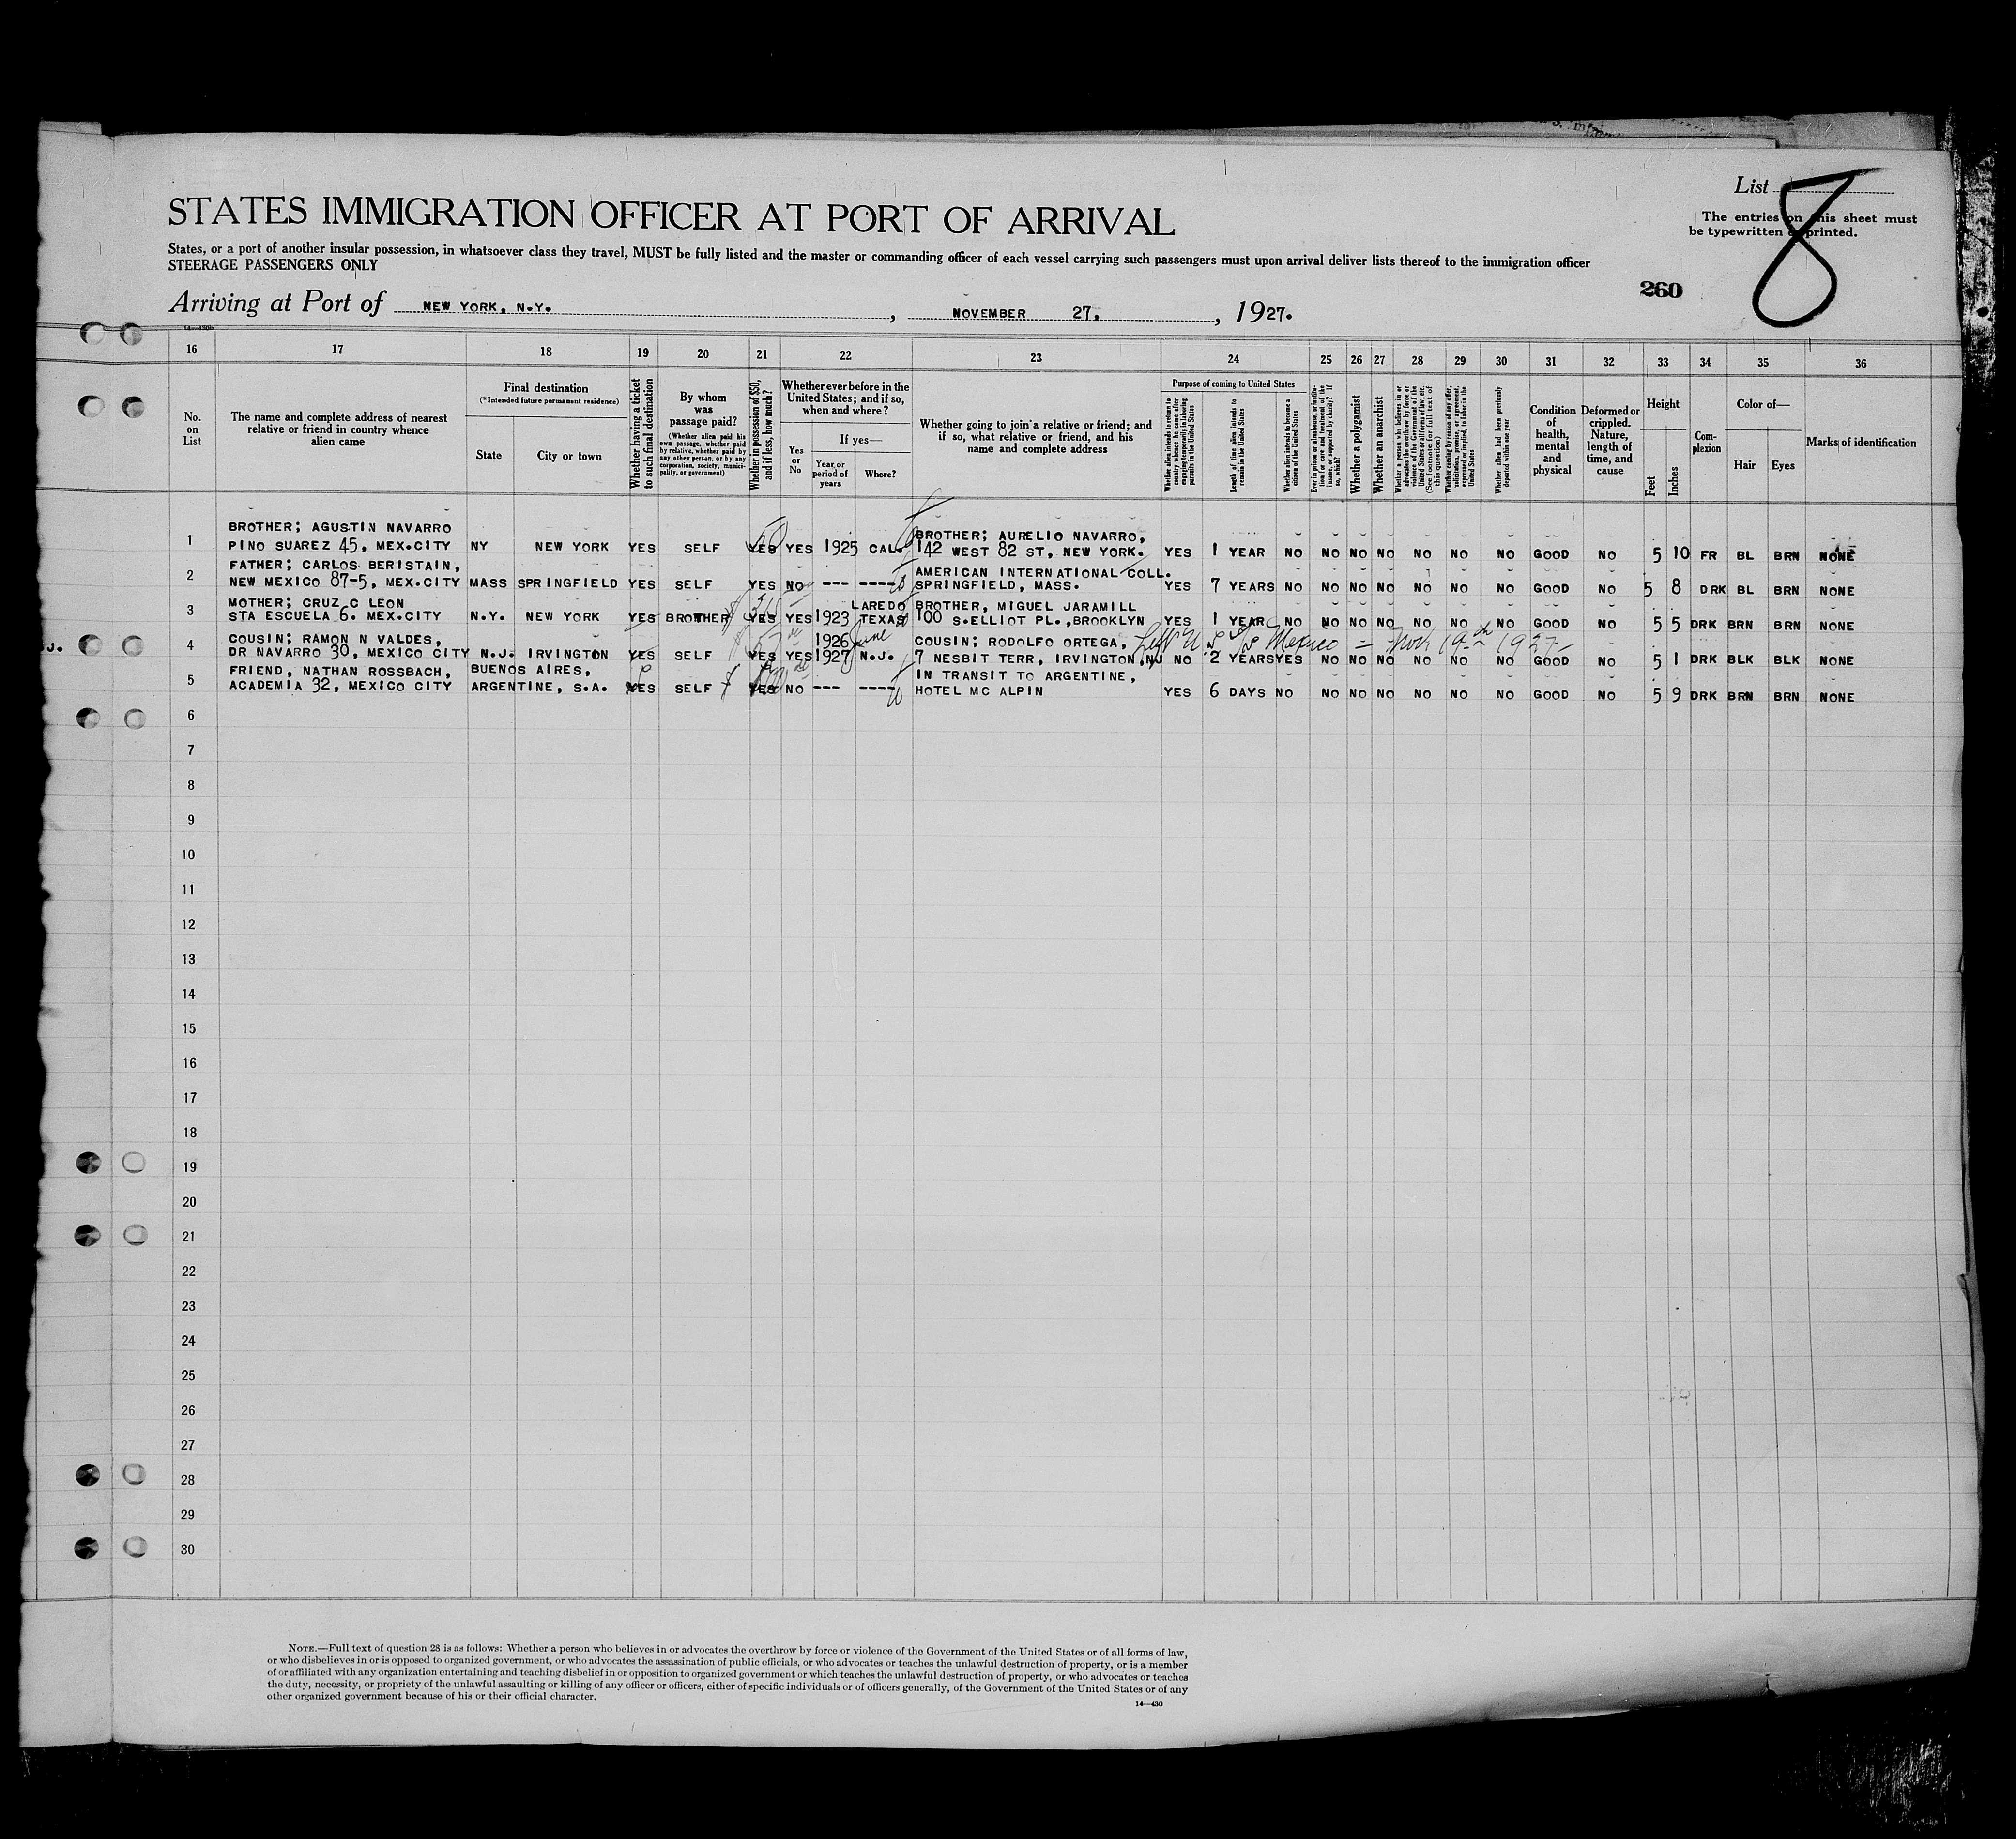 List 8
STATES IMMIGRATION OFFICER AT PORT OF ARRIVAL
The entries on this sheet must
be typewritten or printed.
States, or a port of another insular possession, in whatsoever class they travel, MUST be fully listed and the master or commanding officer of each vessel carrying such passengers must upon arrival deliver lists thereof to the immigration officer
STEERAGE PASSENGERS ONLY
260
Arriving at Port of NEW YORK, N.Y. , NOVEMBER 27. , 1927.
16 17 18 19 20 21 22 23 24 25 26 27 28 29 30 31 32 33 34 35 36
No. on List
The name and complete address of nearest relative or friend in country whence alien came
Final destination
(*Intended future permanent residence)
State
City or town
Whether having a ticket to such final destination
By whom was passage paid?
(Whether alien paid his own passage, whether paid by relative, whether paid by any other person, or by any corporation, society, municipality, or government)
Whether in possession of $50, and if less, how much?
Whether ever before in the United States; and if so, when and where?
Yes or No
If yes—
Year or period of years
Where?
Whether going to join a relative or friend; and if so, what relative or friend, and his name and complete address
Purpose of coming to United States
Whether alien intends to return to country whence he came after engaging temporarily in laboring pursuits in the United States
Length of time alien intends to remain in the United States
Whether alien intends to become a citizen of the United States
Whether a polygamist
Whether an anarchist
(See footnote for full text of this question)
Whether coming by reason of any offer, solicitation, promise, or agreement, expressed or implied, to labor in the United States
Whether alien had been previously deported within one year
Condition of health, mental and physical
Deformed or crippled. Nature, length of time, and cause
Height
Feet
Inches
Complexion
Color of—
Hair
Eyes
Marks of identification
1 BROTHER; AGUSTIN NAVARRO
PINO SUAREZ 45, MEX.CITY NY NEW YORK YES SELF YES YES 1925 CAL. BROTHER; AURELIO NAVARRO,
142 WEST 82 ST, NEW YORK. YES 1 YEAR NO NO NO NO NO NO NO GOOD NO 5 10 FR BL BRN NONE
2 FATHER; CARLOS BERISTAIN,
NEW MEXICO 87-5, MEX.CITY MASS SPRINGFIELD YES SELF YES NO --- ---- AMERICAN INTERNATIONAL COLL.
SPRINGFIELD, MASS. YES 7 YEARS NO NO NO NO NO NO NO GOOD NO 5 8 DRK BL BRN NONE
3 MOTHER; CRUZ C LEON
STA ESCUELA 6. MEX.CITY N.Y. NEW YORK YES BROTHER YES YES 1923 LAREDO TEXAS BROTHER, MIGUEL JARAMILL
100 S.ELLIOT PL.,BROOKLYN YES 1 YEAR NO NO NO NO NO NO NO GOOD NO 5 5 DRK BRN BRN NONE
Left U.S. to Mexico = Nov. 19th 1927
J. 4 COUSIN; RAMON N VALDES,
DR NAVARRO 30, MEXICO CITY N.J. IRVINGTON YES SELF YES YES 1926 1927 June N.J. COUSIN; RODOLFO ORTEGA,
7 NESBIT TERR, IRVINGTON,NJ NO 2 YEARS YES NO NO NO NO NO NO GOOD NO 5 1 DRK BLK BLK NONE
5 FRIEND, NATHAN ROSSBACH, BUENOS AIRES,
ACADEMIA 32, MEXICO CITY ARGENTINE, S.A. YES SELF YES NO --- ---- IN TRANSIT TO ARGENTINE,
HOTEL MC ALPIN YES 6 DAYS NO NO NO NO NO NO NO GOOD NO 5 9 DRK BRN BRN NONE
6
7
8
9
10
11
12
13
14
15
16
17
18
19
20
21
22
23
24
25
26
27
28
29
30
NOTE.—Full text of question 28 is as follows: Whether a person who believes in or advocates the overthrow by force or violence of the Government of the United States or of all forms of law,
or who disbelieves in or is opposed to organized government, or who advocates the assassination of public officials, or who advocates or teaches the unlawful destruction of property, or is a member
of or affiliated with any organization entertaining and teaching disbelief in or opposition to organized government or which teaches the unlawful destruction of property, or who advocates or teaches
the duty, necessity, or propriety of the unlawful assaulting or killing of any officer or officers, either of specific individuals or of officers generally, of the Government of the United States or of any
other organized government because of his or their official character.
14—430